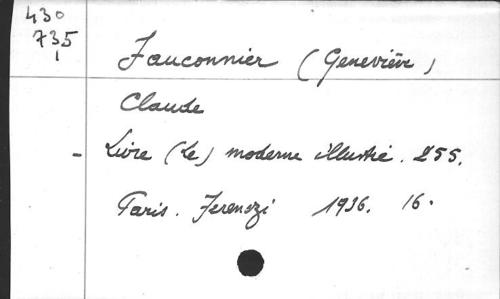 430
735
1
Fauconnier (Geneviève)
Claude
- Livre (Le) moderne illustré. 255.
Paris. Ferenczi 1936. 16°